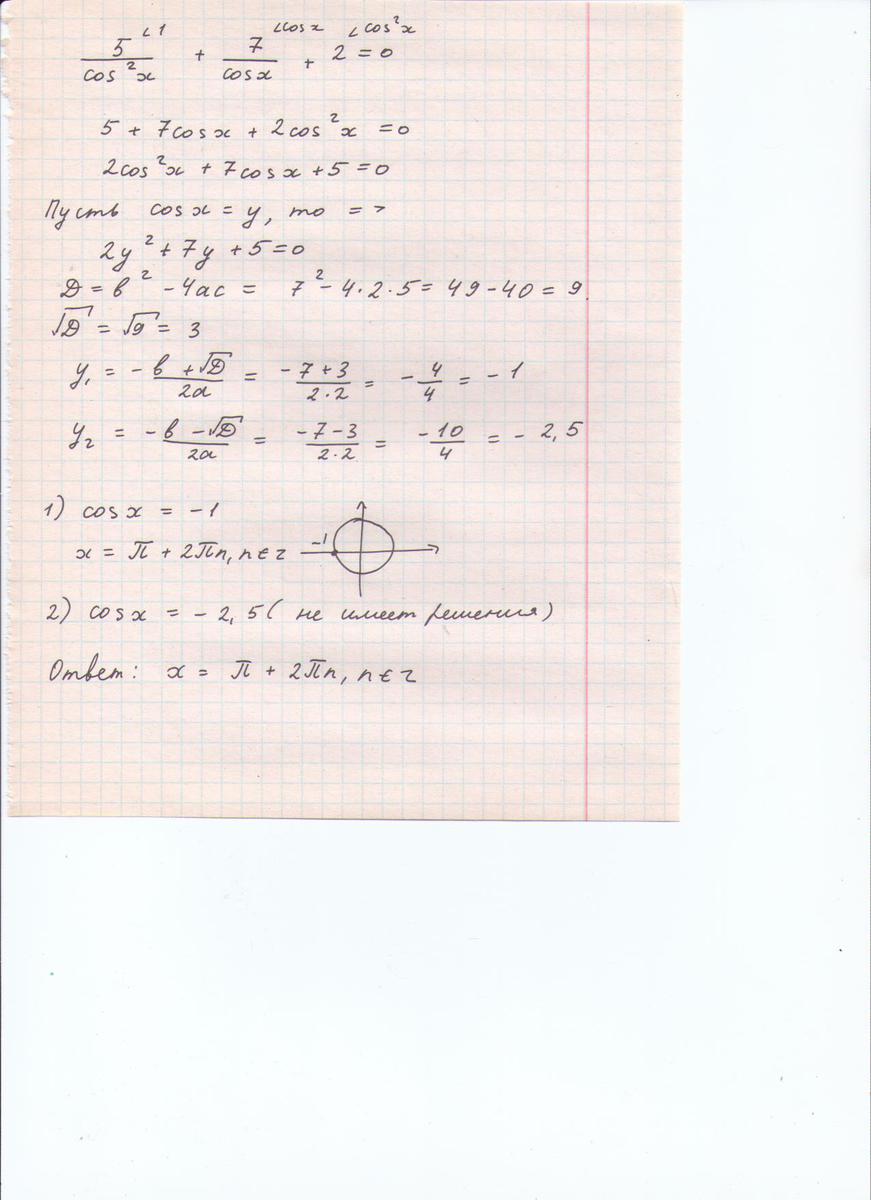 5/cos²x ∠1 + 7/cosx ∠cosx + 2 ∠cos²x = 0
5 + 7cosx + 2cos²x = 0
2cos²x + 7cosx + 5 = 0
Пусть cosx = y, то =>
2y² + 7y + 5 = 0
D = b² - 4ac = 7² - 4·2·5 = 49 - 40 = 9
√D = √9 = 3
y₁ = (-b + √D)/2a = (-7 + 3)/2·2 = -4/4 = -1
y₂ = (-b - √D)/2a = (-7 - 3)/2·2 = -10/4 = -2,5
1) cosx = -1
x = π + 2πn, n ∈ z
-1
2) cosx = -2,5 (не имеет решения)
Ответ: x = π + 2πn, n ∈ z